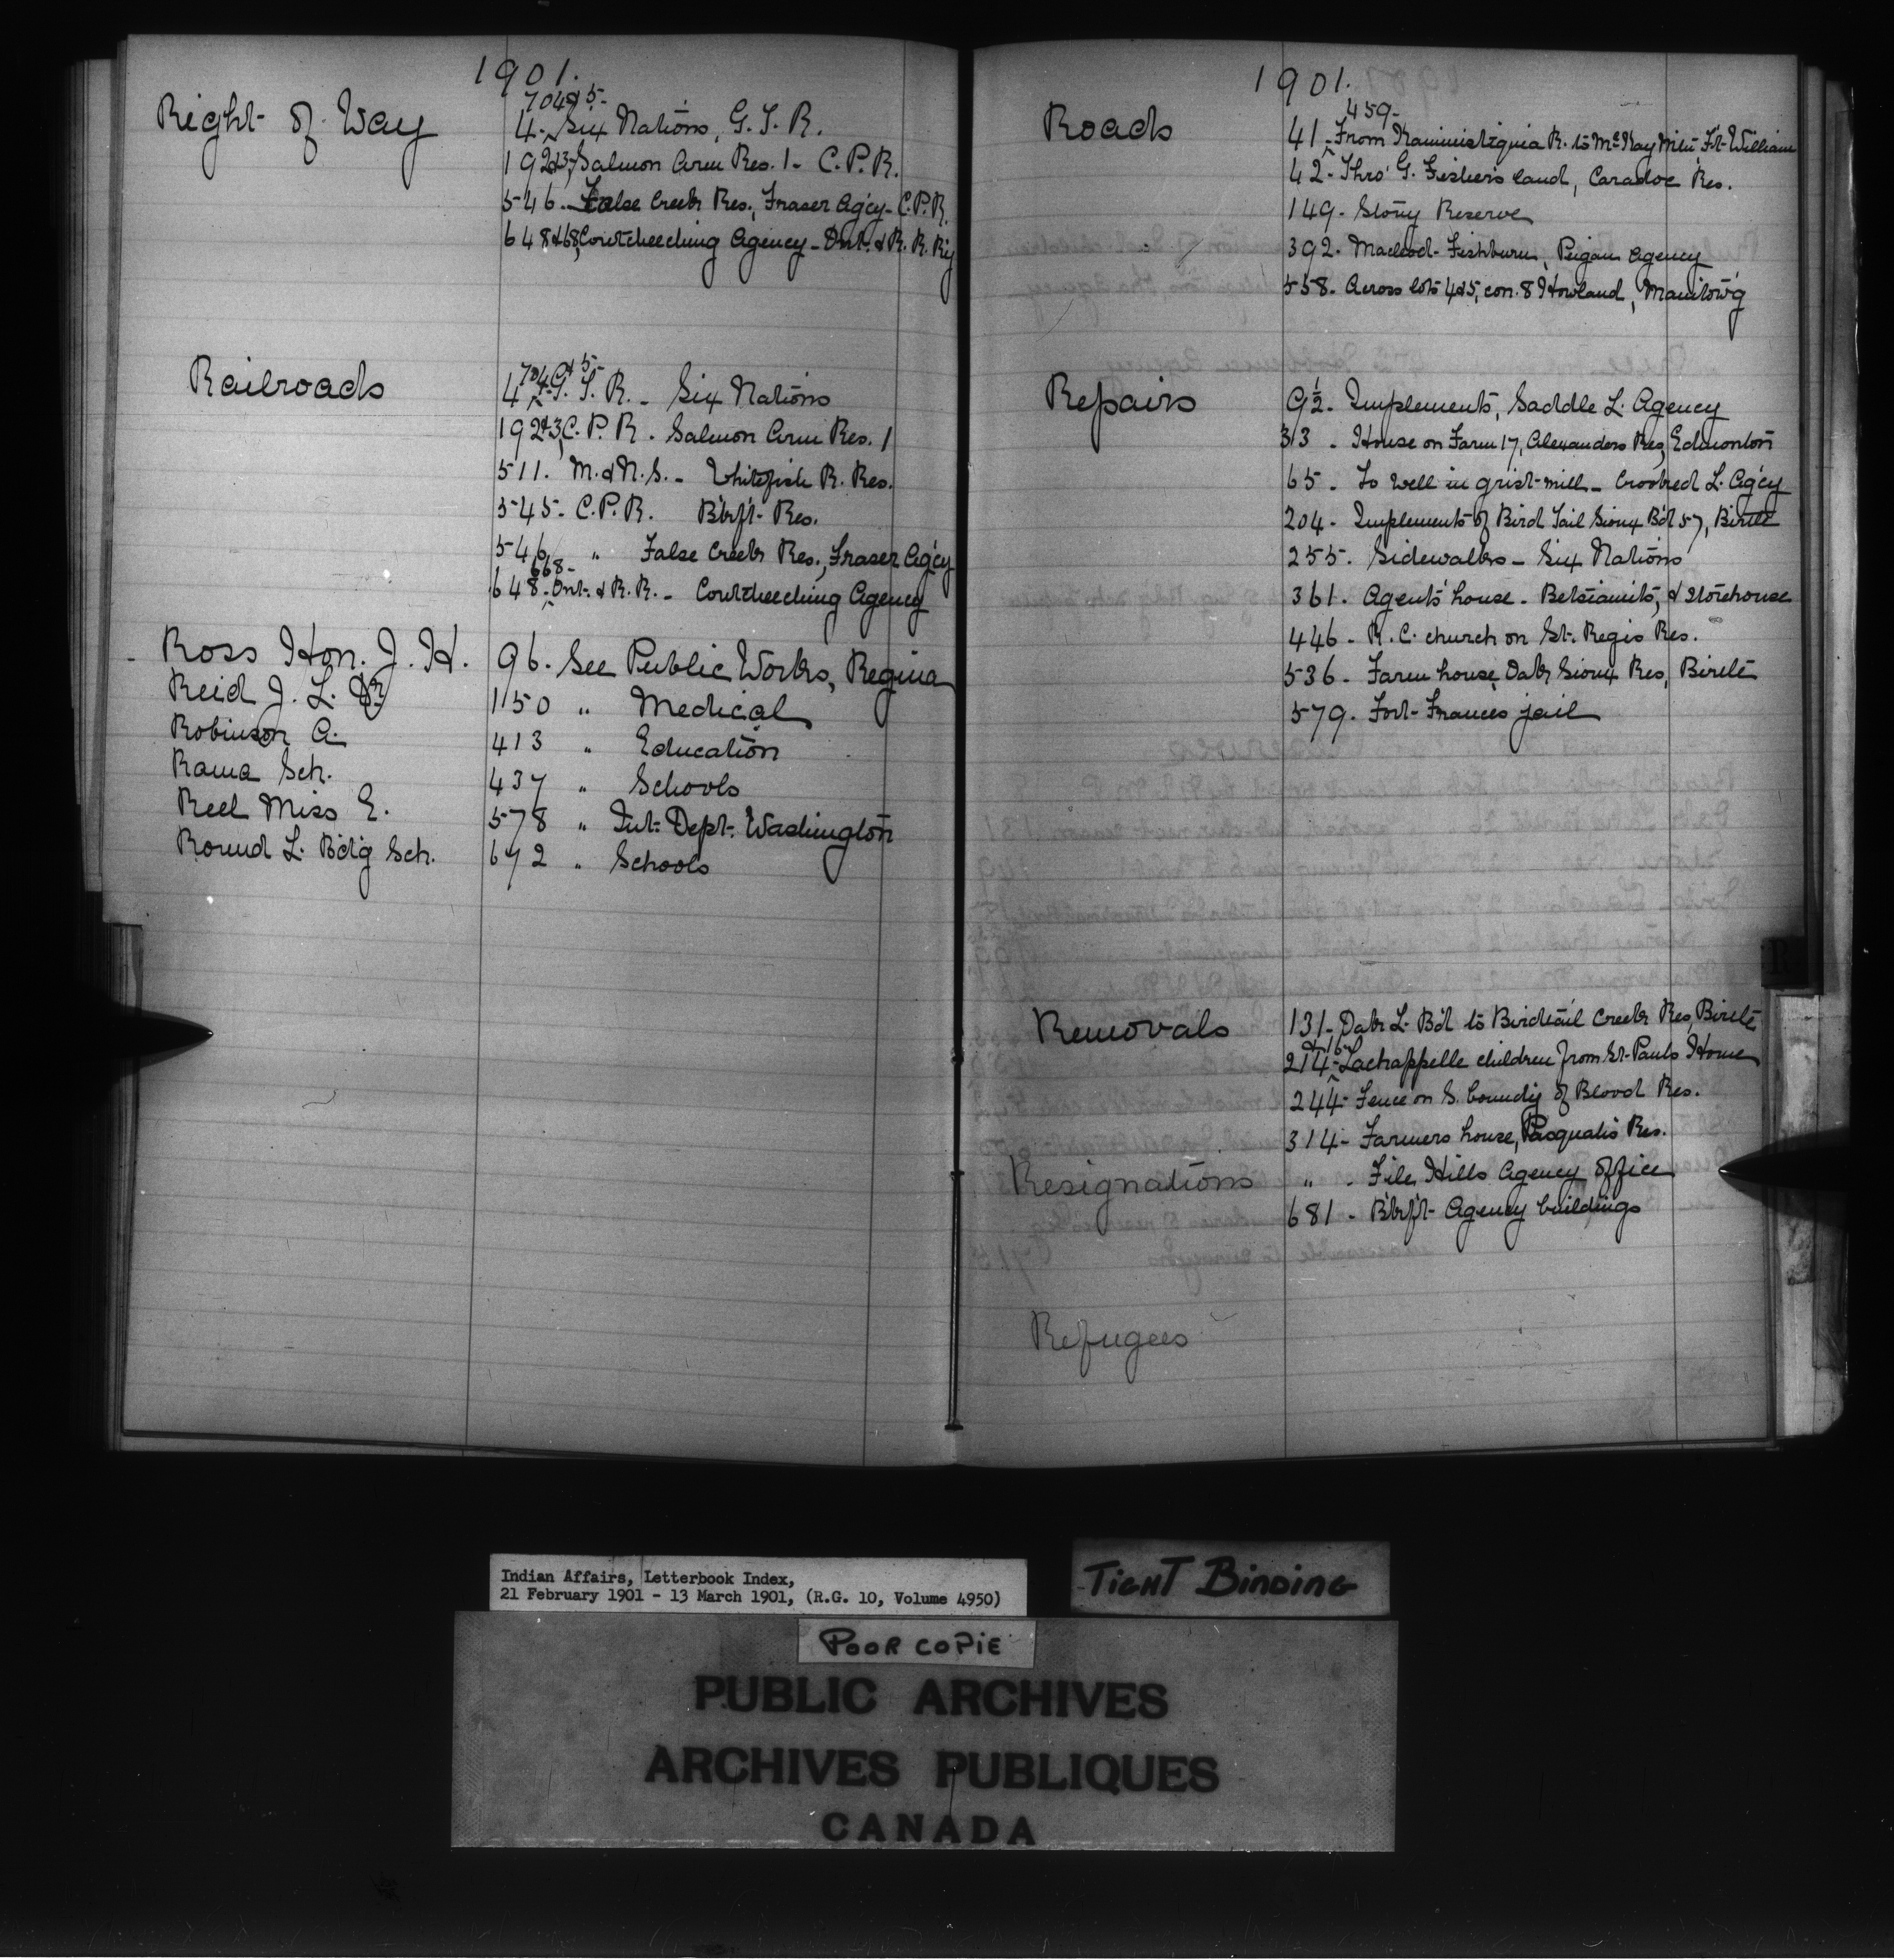 1901.
704 & 5-
Right of Way 4- Six Nations, G. T. R.
192&3, Salmon Arm Res. 1 - C. P. R.
546. False Creek Res., Fraser Ag'cy - C. P. R.
648&68, Coutcheeching Agency - Ont. & R. R. R'y
704 & 5-
Railroads 4- G. T. R. - Six Nations
192&3, C. P. R. - Salmon Arm Res. 1
511. M. & N. S. - Whitefish R. Res.
545- C. P. R. B'kf't- Res.
546 " False Creek Res., Fraser Ag'cy
668-
648- Ont. & R. R. - Coutcheeching Agency
Ross Hon. J. H. 96. See Public Works, Regina
Reid J. L. Dr 1150 " Medical
Robinson A. 413 " Education
Rama Sch. 437 " Schools
Reel Miss E. 578 " Int. Dept. Washington
Round L. Bd'g Sch. 672 " Schools
1901.
459-
Roads 41- From Kaministiquia R. to McKay Mtn Ft. William
42- Thro' G. Fisher's land, Caradoc Res.
149- Stony Reserve
392- Macleod- Fishburn, Peigan Agency
558- Across lots 4&5, con. 8 Howland, Manitow'g
Repairs 9½- Implements, Saddle L. Agency
313 - House on Farm 17, Alexanders Res, Edmonton
65- To well in grist-mill - Crooked L. Ag'cy
204- Implements of Bird Tail Sioux B'd 57, Birtle
255. Sidewalks - Six Nations
361. Agent's house - Betsiamits, & storehouse
446- R. C. church on St. Regis Res.
536- Farm house Oak Sioux Res, Birtle
579. Fort Frances jail
Removals 131- Oak L. B'd to Birdtail Creek Res, Birtle
214- Lachappelle children from St. Pauls Home
244- Fence on S. bound'y of Blood Res.
314- Farmers house, Pasquah's Res.
Resignations " - File Hills Agency office
681- B'kf't- Agency buildings
Refugees
R
Indian Affairs, Letterbook Index,
21 February 1901 - 13 March 1901, (R.G. 10, Volume 4950)
TIGHT BINDING
POOR COPIE
PUBLIC ARCHIVES
ARCHIVES PUBLIQUES
CANADA